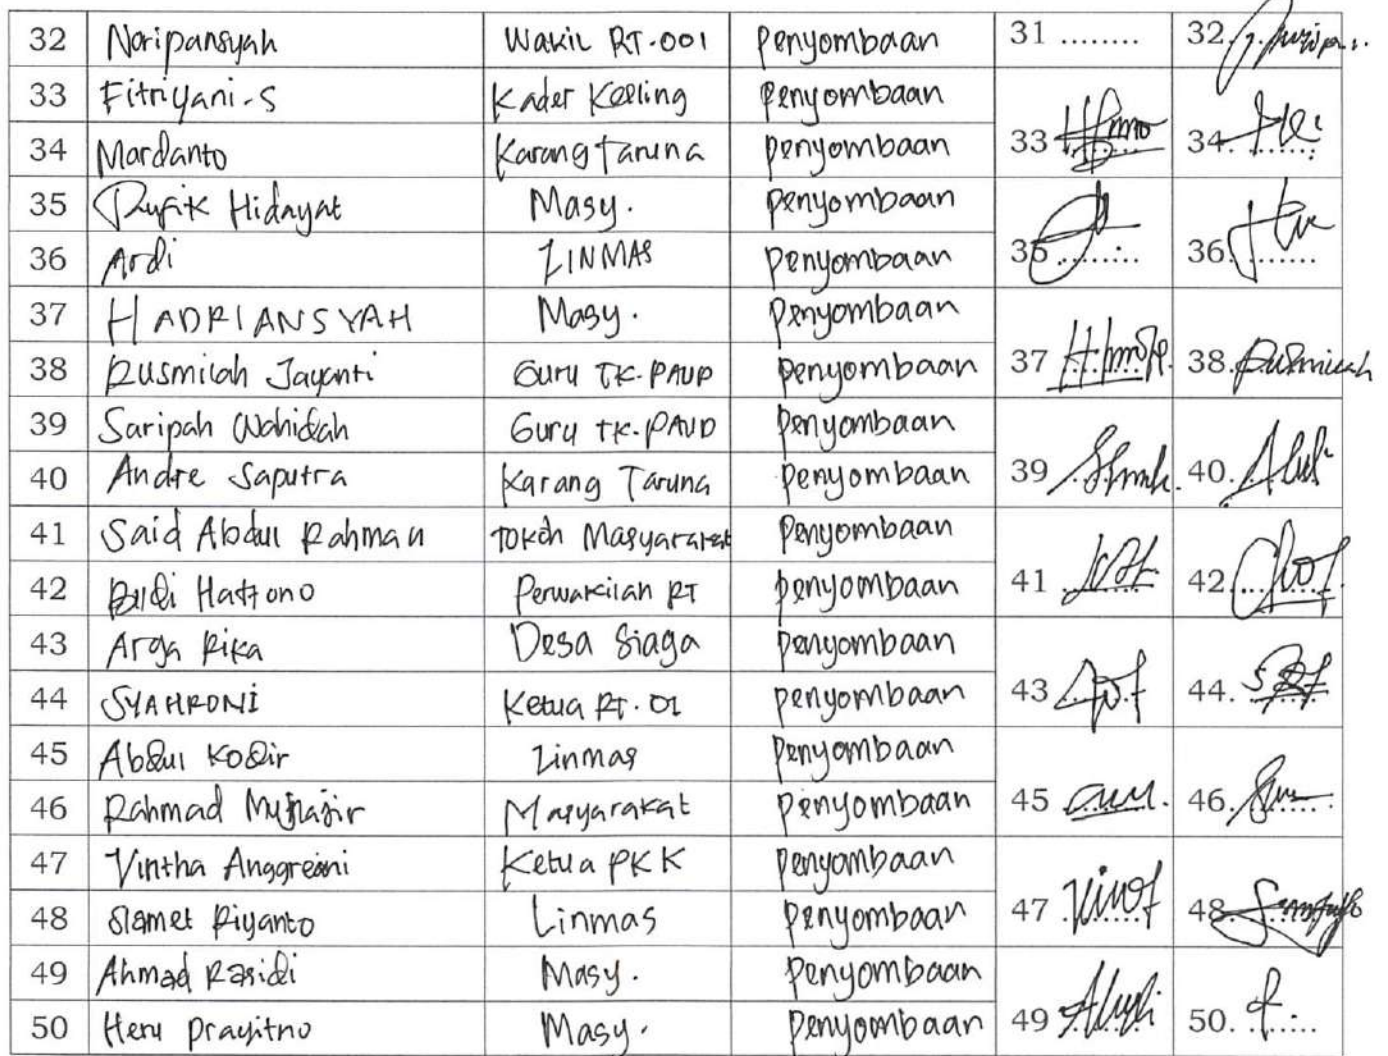 32 Noripansyah Wakil RT.001 Penyombaan 31 ........ 32.
33 Fitriyani.S Kader Keeling Penyombaan
34 Mardanto Karang Taruna Penyombaan 33 34.
35 Rufik Hidayat Masy. Penyombaan
36 Ardi LINMAS Penyombaan 35 36.
37 HADRIANSYAH Masy. Penyombaan
38 Rusmilah Jayanti Guru TK-PAUD Penyombaan 37 38. Rusmilah
39 Saripah Wahidah Guru TK-PAUD Penyombaan
40 Andre Saputra Karang Taruna Penyombaan 39 40.
41 Said Abdul Rahman Tokoh Masyarakat Penyombaan
42 Budi Hartono Perwakilan RT Penyombaan 41 42.
43 Arga Rika Desa Siaga Penyombaan
44 SYAHRONI Ketua RT.01 Penyombaan 43 44.
45 Abdul Kodir Linmas Penyombaan
46 Rahmad Masyarakat Penyombaan 45 46.
47 Vintha Anggreani Ketua PKK Penyombaan
48 Slamet Riyanto Linmas Penyombaan 47 48
49 Ahmad Rasidi Masy. Penyombaan
50 Heru Prayitno Masy. Penyombaan 49 50.